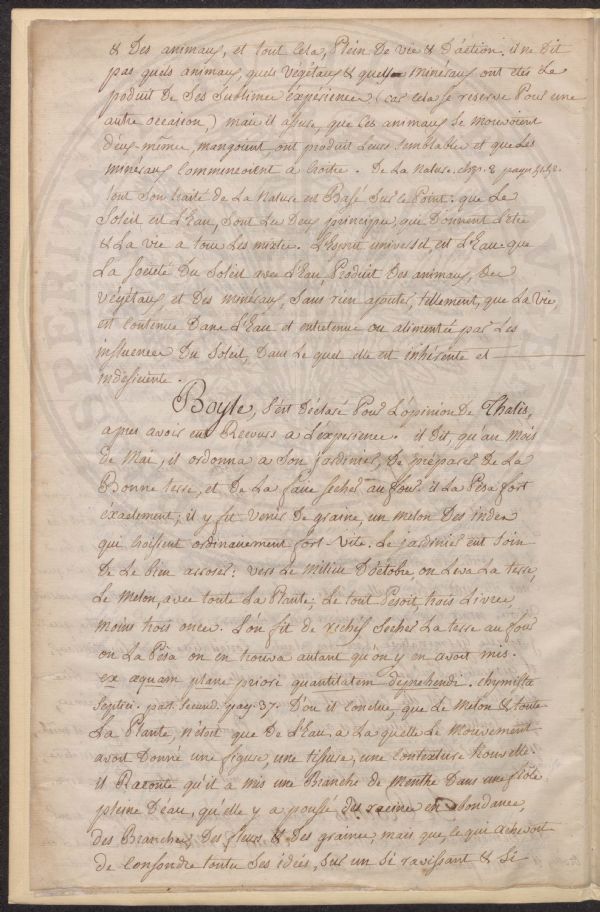 & des animaux, et tout cela, plein de vie & d'action. il ne dit
pas quels animaux, quels végétaux & quels minéraux ont étés le
produit de ses sublimes expérience (car cela se réserve pour une
autre occasion,) mais il assure, que ces animaux se mouvoient
d'eux-même, mangoient, ont produit leurs semblables et que les
minéraux commencoient a croitre. De la Nature. chap. 8 pag.
tout son traité de la Nature est basé sur le point: que le
Soleil est l'Eau, sont les deux principes, qui donnent l'etre
& la vie a tous les mixtes. L'Esprit universel, est l'Eau que
la société du Soleil avec l'Eau, produit des animaux, des
végétaux, et des minéraux, sans rien ajouter, tellement, que la vie,
est contenue dans l'Eau et entretenue ou alimentée par les
influences du Soleil, dans le quel elle est inhérente et
indéficiente.
Boyle, s'est déclaré pour l'opinion de Thalis,
apres avoir eut recours a l'experience. il dit, qu'au mois
de Mai, il ordonna a son jardinier, de préparer de la
Bonne terre, et de la faire secher au four. il la pesa fort
exactement; il y fit venir de graine, un melon des indes
qui croissent ordinairement fort vite. Le jardinier eut soin
de le bien arroser: vers le milieu d'octobre, on leva la terre,
le melon, avec toute la plante, le tout pesoit, trois livres
moins trois once. l'on fit de rechef secher la terre au four
on la pesa on en trouva autant qu'on y en avoit mis.
ex æquam plane priori quantitatem deprehendi. chymista
Sceptic. part. secund. pag. 37. D'ou il conclue, que le Melon & toute
la plante, n'étoit que de l'Eau, a la quelle le mouvement
avoit donné une figure, une tissure, une contexture nouvelle.
il raconte qu'il a mis une Branche de menthe dans une fiole
pleine d'eau, qu'elle y a poussé des racine en abondance,
des Branches, des fleurs & des graines, mais que, ce qui achevoit
de confondre toutes ses idées, sur un si ravissant & si